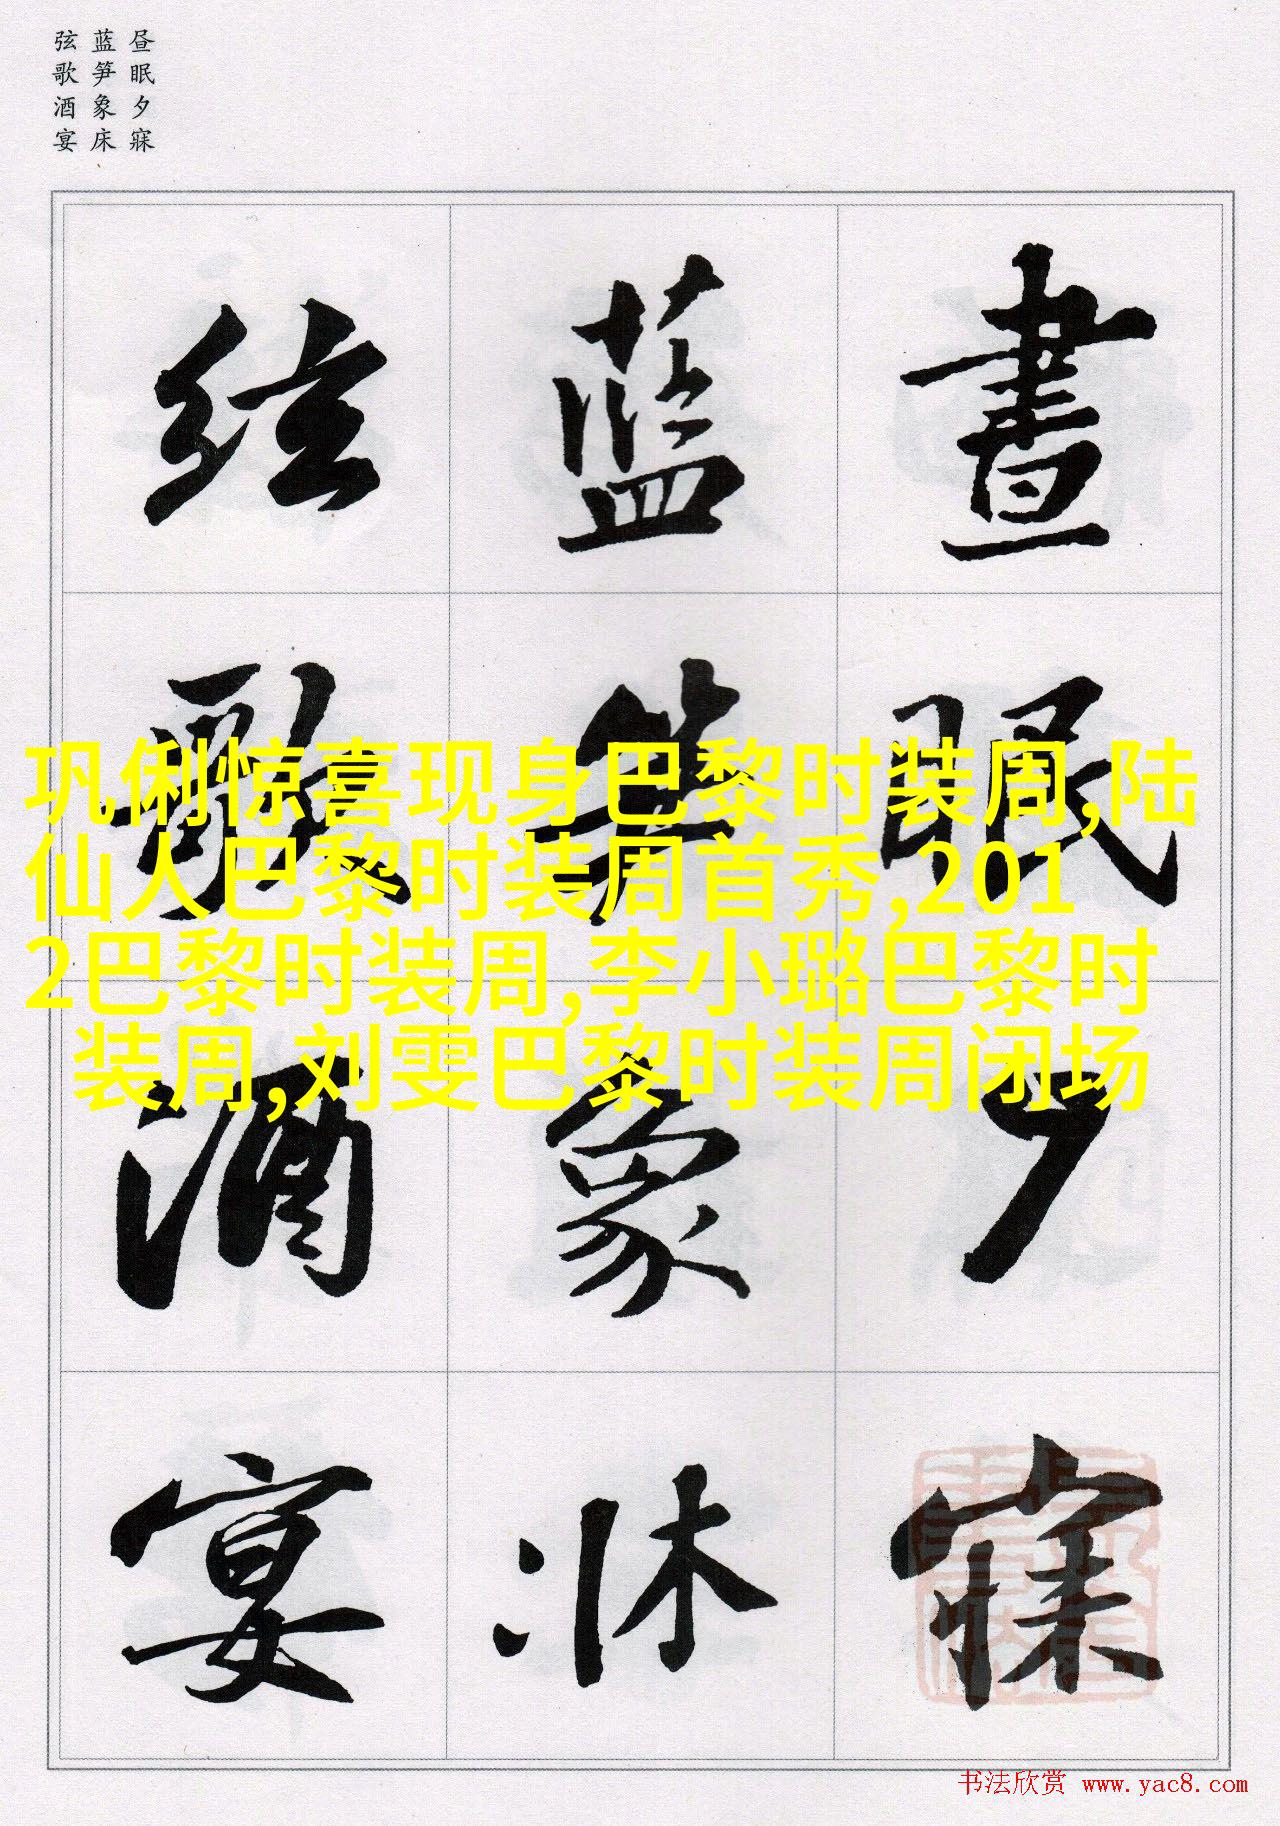 昼眠夕寐
蓝笋象床
弦歌酒宴
晝眠夕寐
藍笋象牀
絃歌酒宴
巩俐惊喜现身巴黎时装周,陆
仙人巴黎时装周首秀,201
2巴黎时装周,李小璐巴黎时
装周,刘雯巴黎时装周闭场
书法欣赏 www.yac8.com